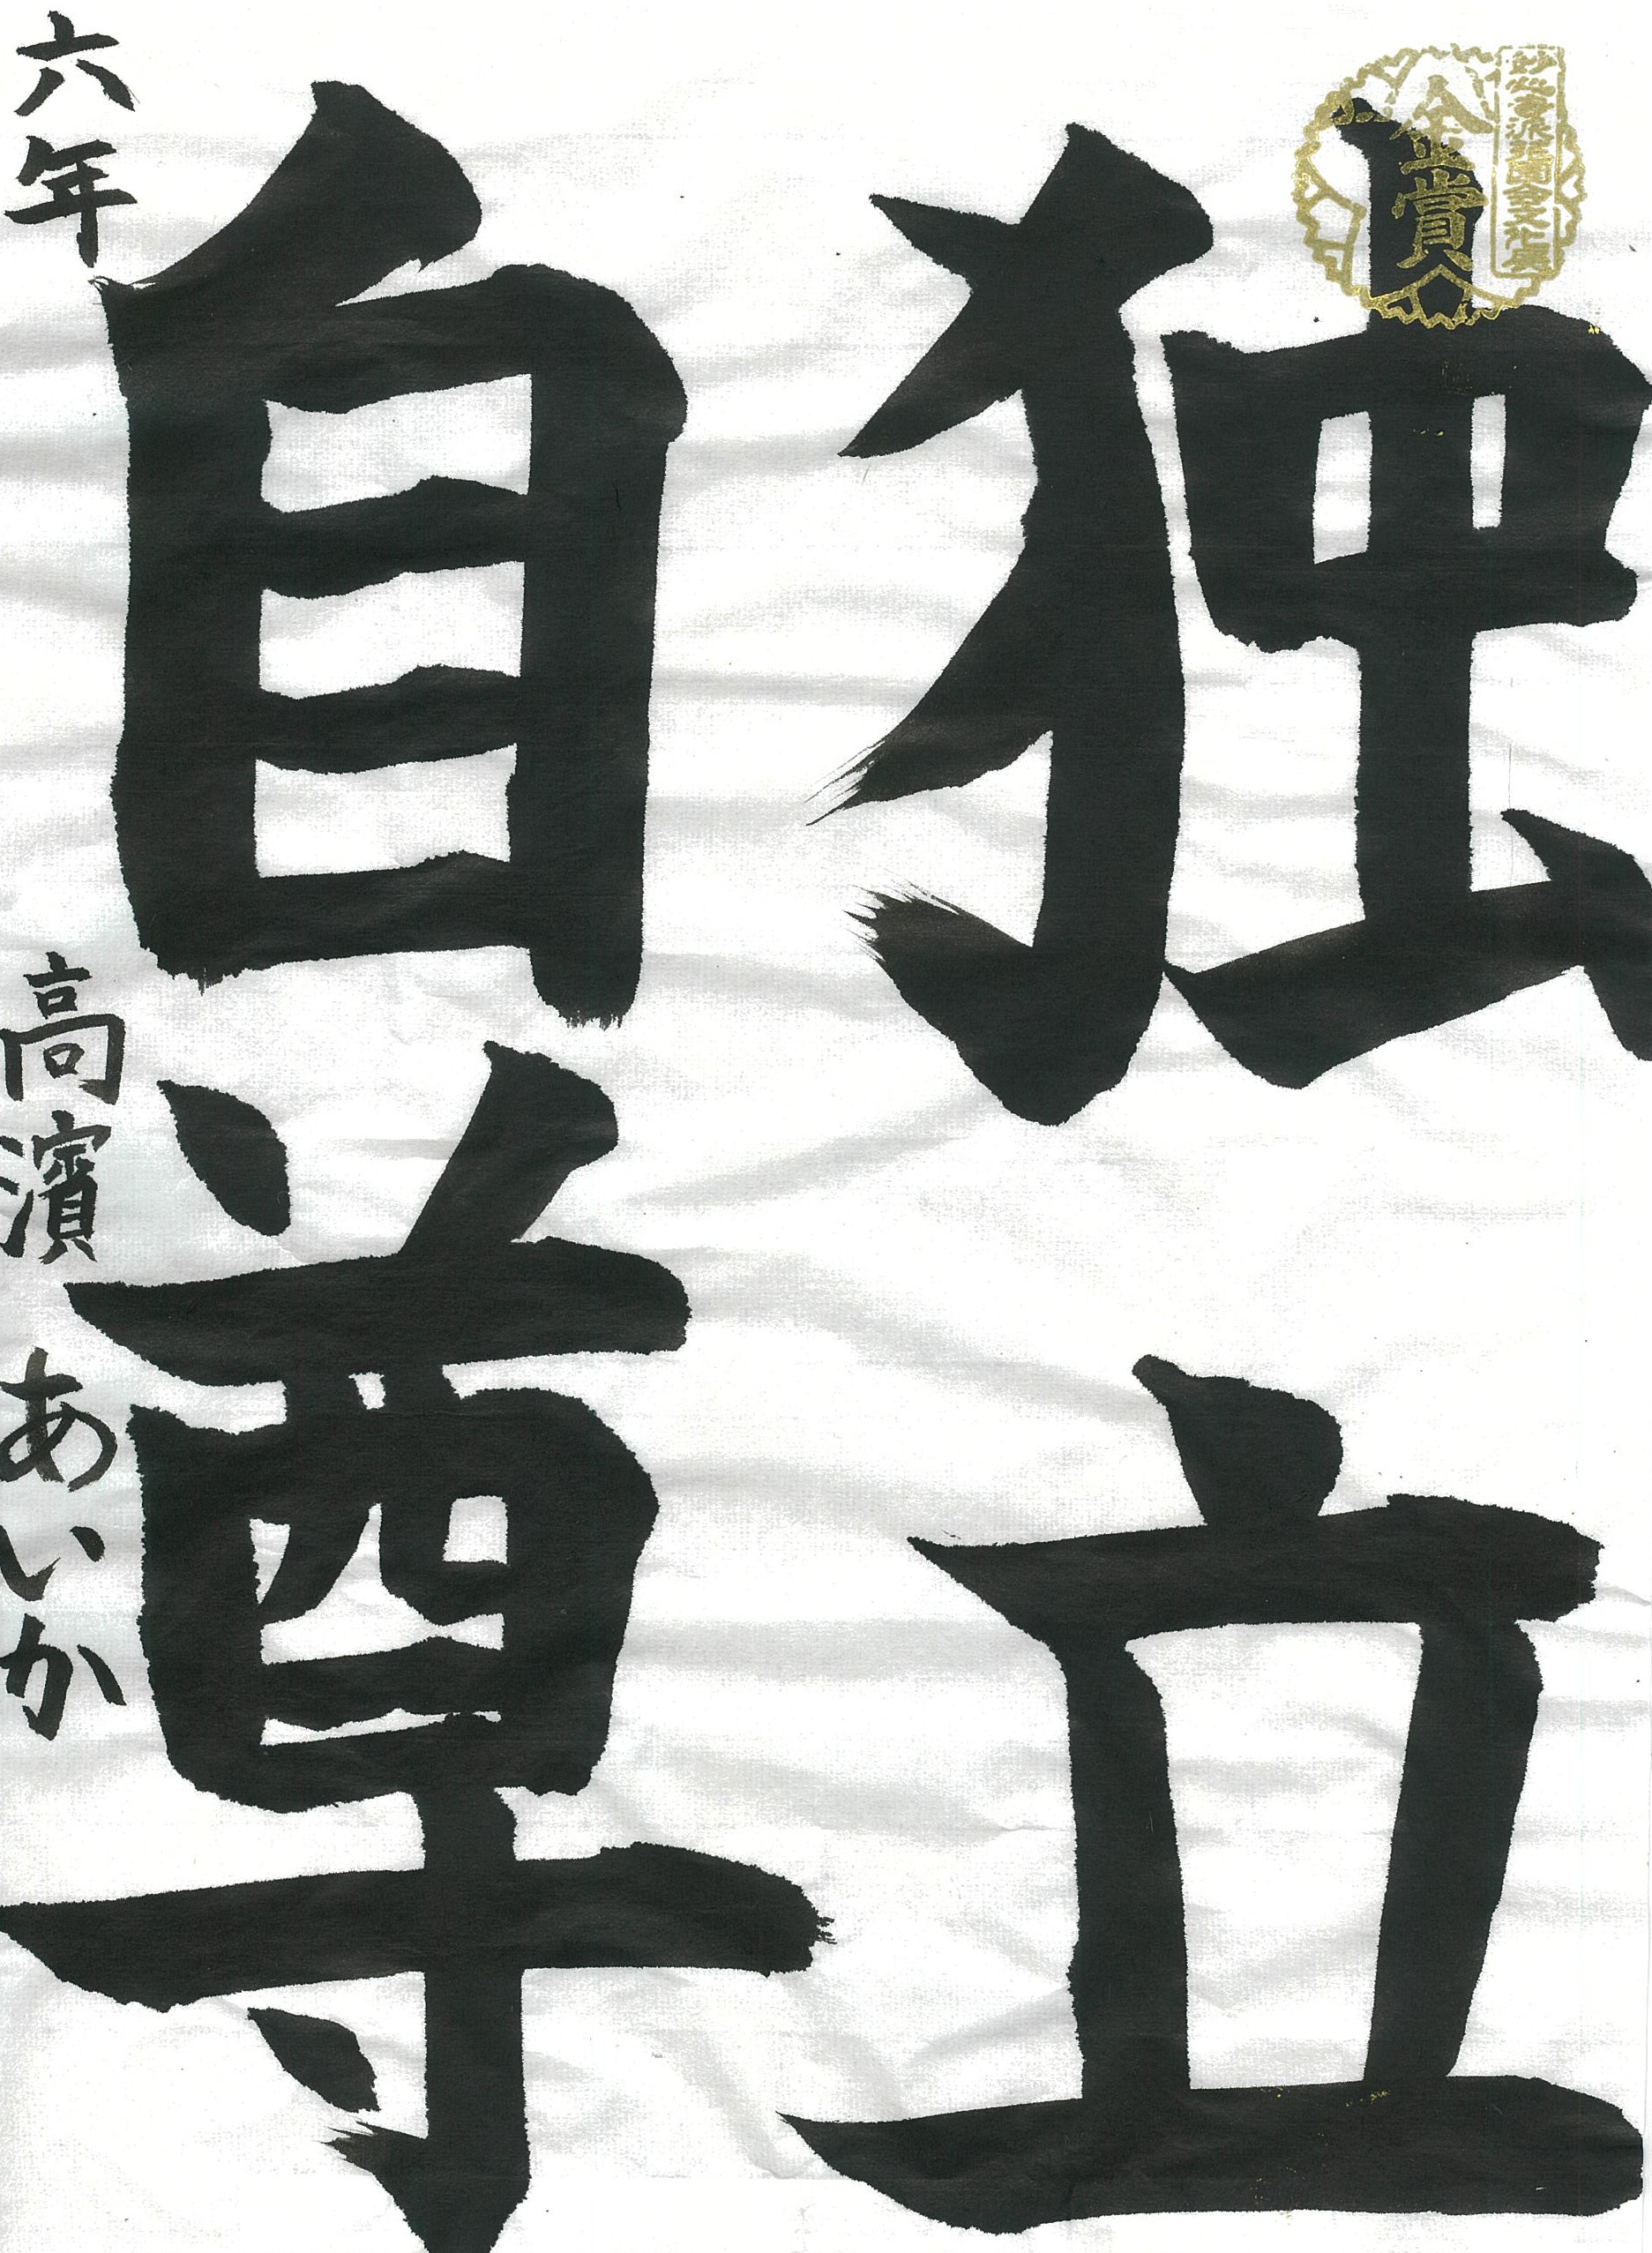 独立
自尊
六年 高濱 あいか
金賞